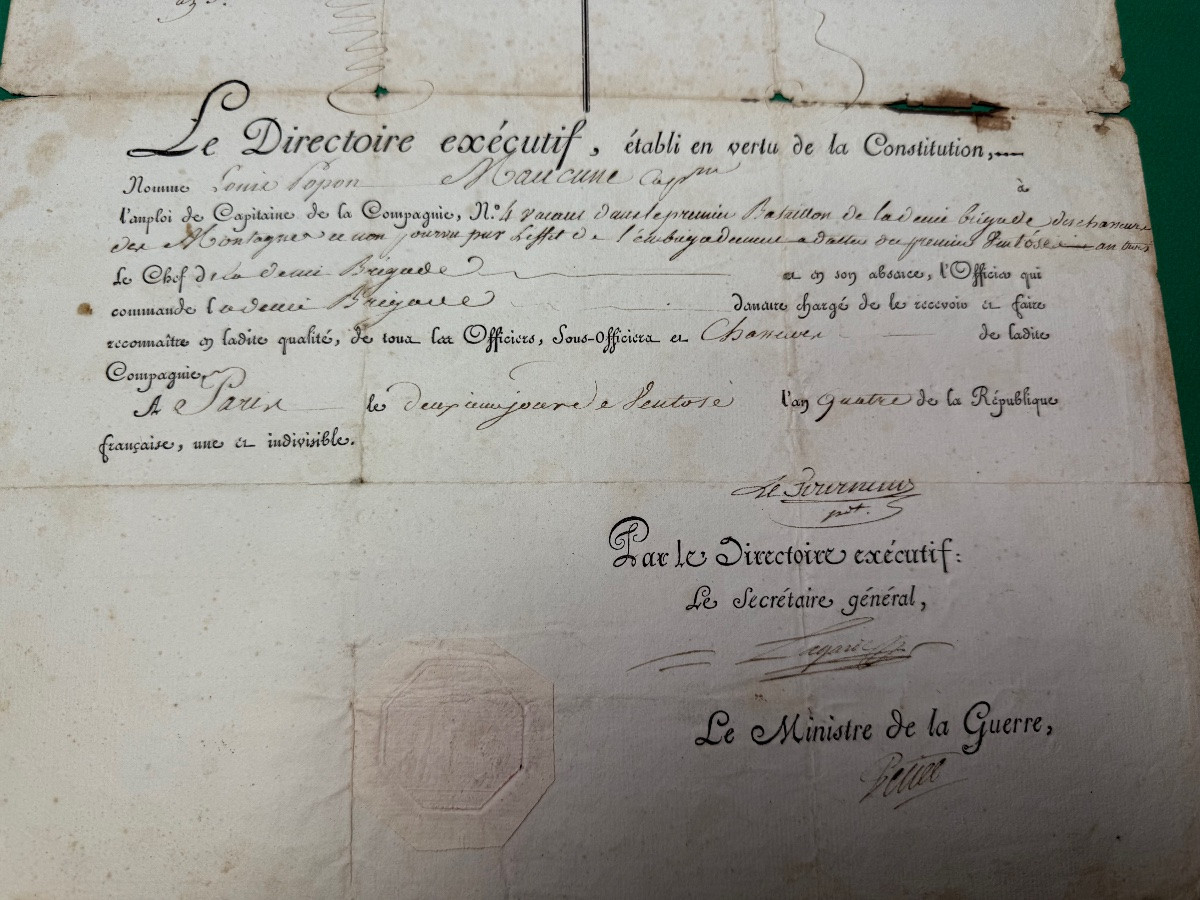 Le Directoire exécutif, établi en vertu de la Constitution,
Nomme Louis Popon Maucune Cap.ne à
l'emploi de Capitaine de la Compagnie, N.o 4 vacant dans le premier Bataillon de la demi brigade des chasseurs
des Montagnes et non pourvu par l'effet de l'embrigadement a datter du premier Ventôse an trois
Le Chef de la demi Brigade et en son absence, l'Officier qui
commande la demi Brigade demeure chargé de le recevoir et faire
reconnaître en ladite qualité, de tous les Officiers, Sous-Officiers et Chasseurs de ladite
Compagnie.
A Paris le deuxieme jour de Ventose l'an quatre de la République
française, une et indivisible.
Le Tourneur
pdt.
Par le Directoire exécutif:
Le Secrétaire général,
Lagarde
Le Ministre de la Guerre,
Petiet